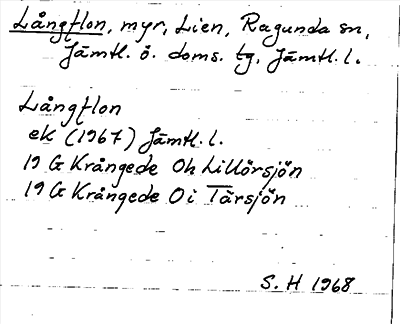 Långflon, myr, Lien, Ragunda sn,
Jämtl. ö. doms. tg. Jämtl. l.
Långflon
ek (1967) Jämtl. l.
19 G Krångede Oh Lillörsjön
19 G Krångede Oi Tärsjön
S. H 1968